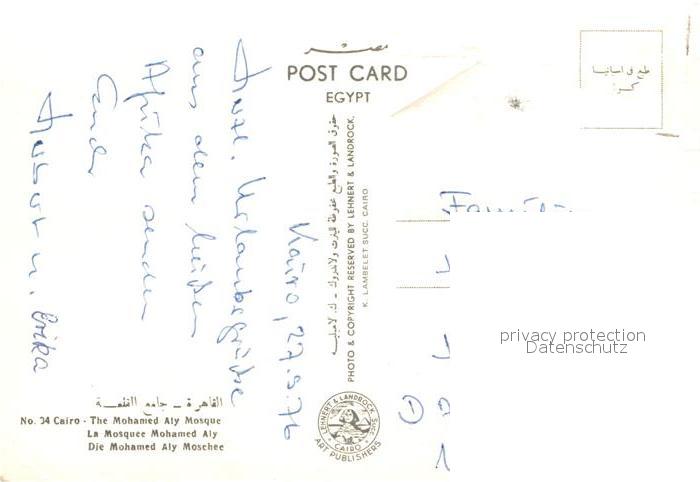 مصر
POST CARD
EGYPT
طبع في اسبانيا
Kairo, 27.9.76
Herzl. Urlaubsgrüße
aus dem heißen
Afrika senden
Euch
Hubert u. Erika
Familie
PHOTO & COPYRIGHT RESERVED BY LEHNERT & LANDROCK,
K. LAMBELET SUCC. CAIRO
القاهرة - جامع القلعة
No. 34 Cairo - The Mohamed Aly Mosque
La Mosquee Mohamed Aly
Die Mohamed Aly Moschee
LEHNERT & LANDROCK SUCC.
CAIRO
ART PUBLISHERS
privacy protection
Datenschutz